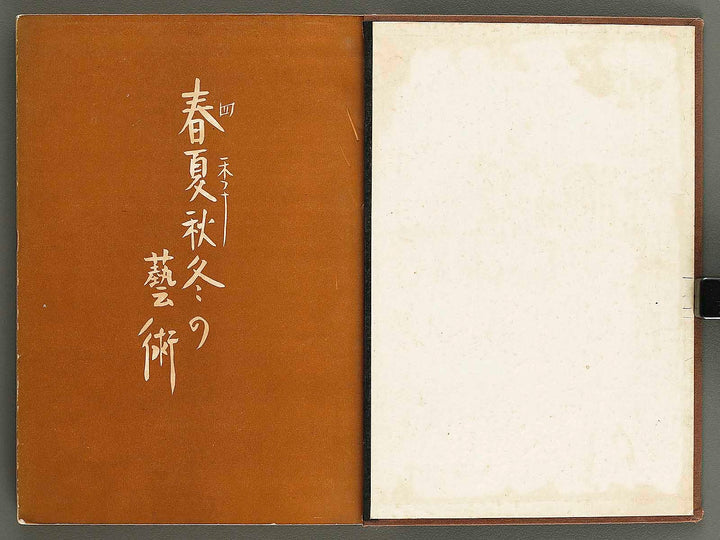 四季
春夏秋冬の
藝術